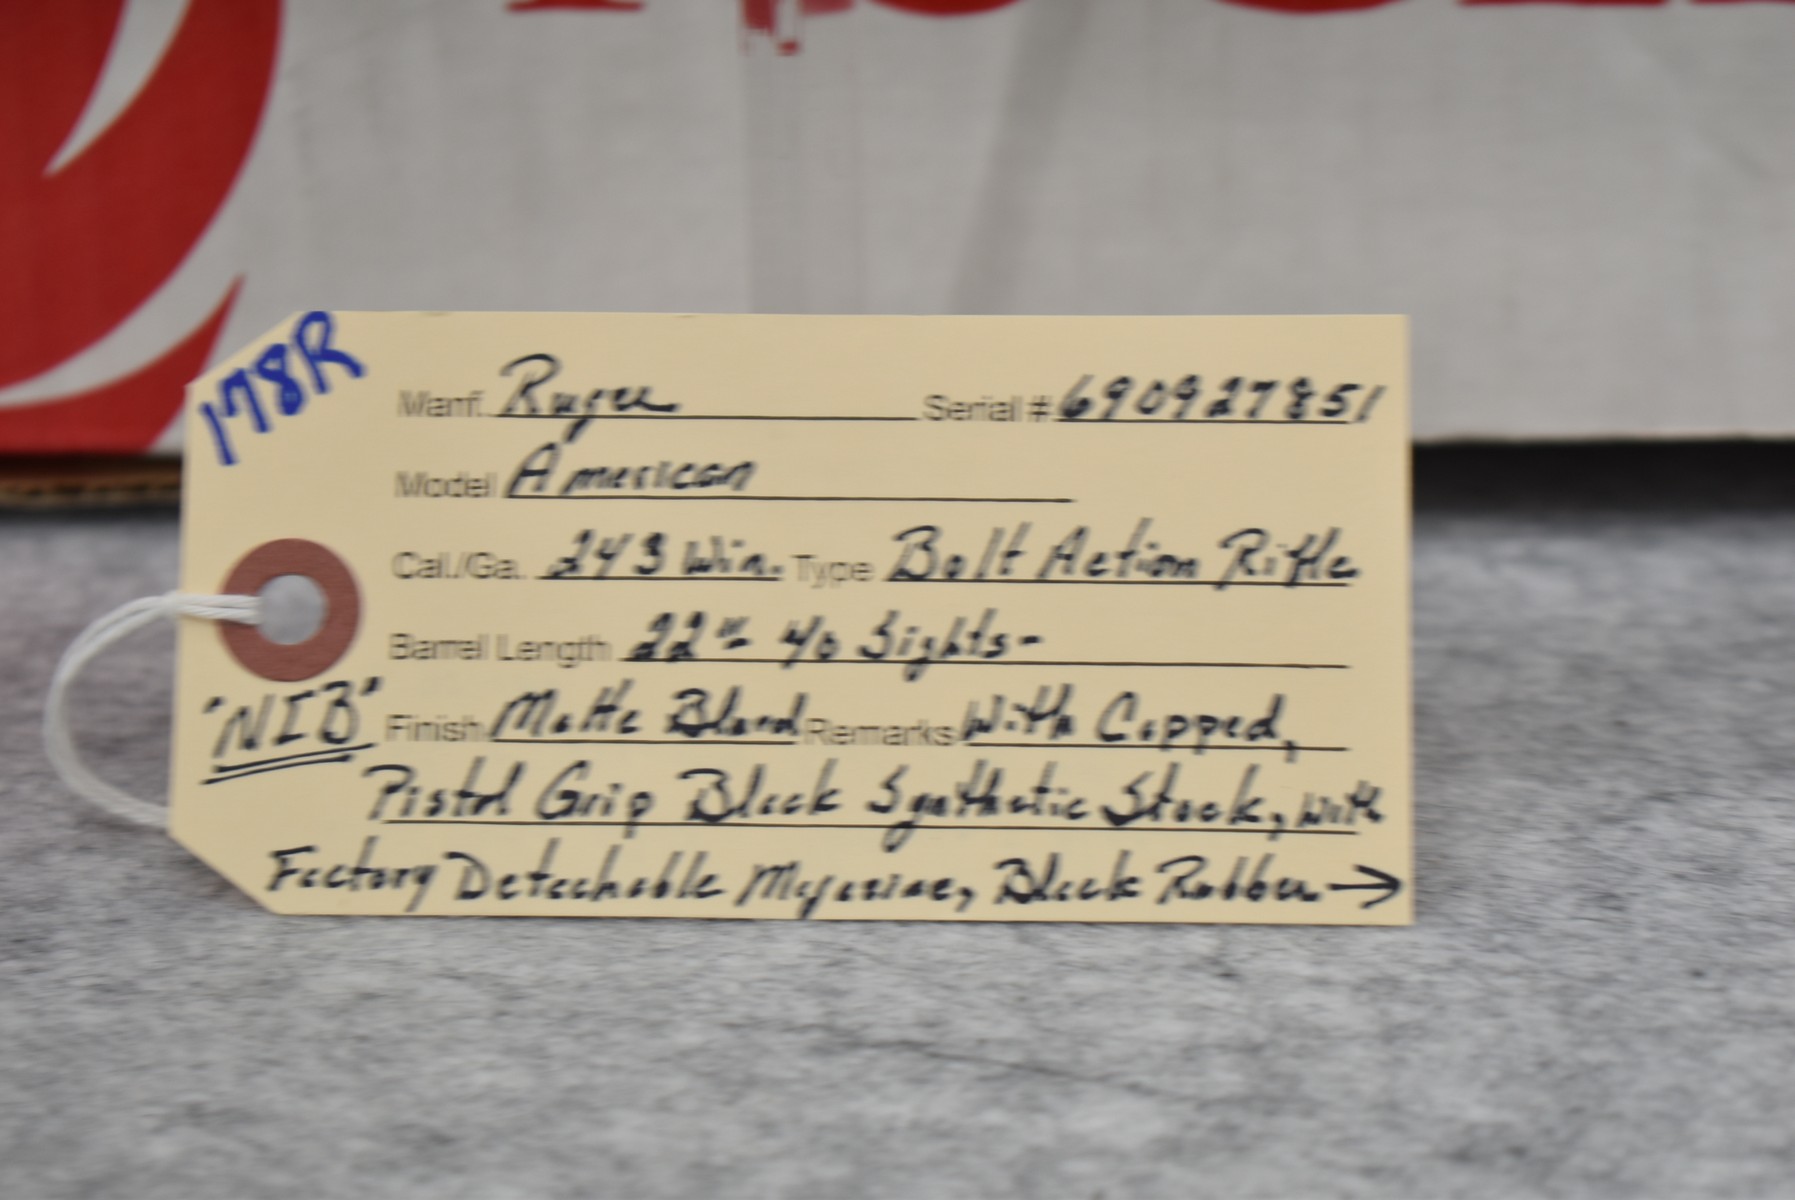 178R
Manf. Ruger Serial # 690927851
Model American
Cal./Ga. 243 Win. Type Bolt Action Rifle
Barrel Length 22" w/o Sights-
"NIB" Finish Matte Blued Remarks With Capped,
Pistol Grip Black Synthetic Stock, with
Factory Detachable Magazine, Black Rubber →